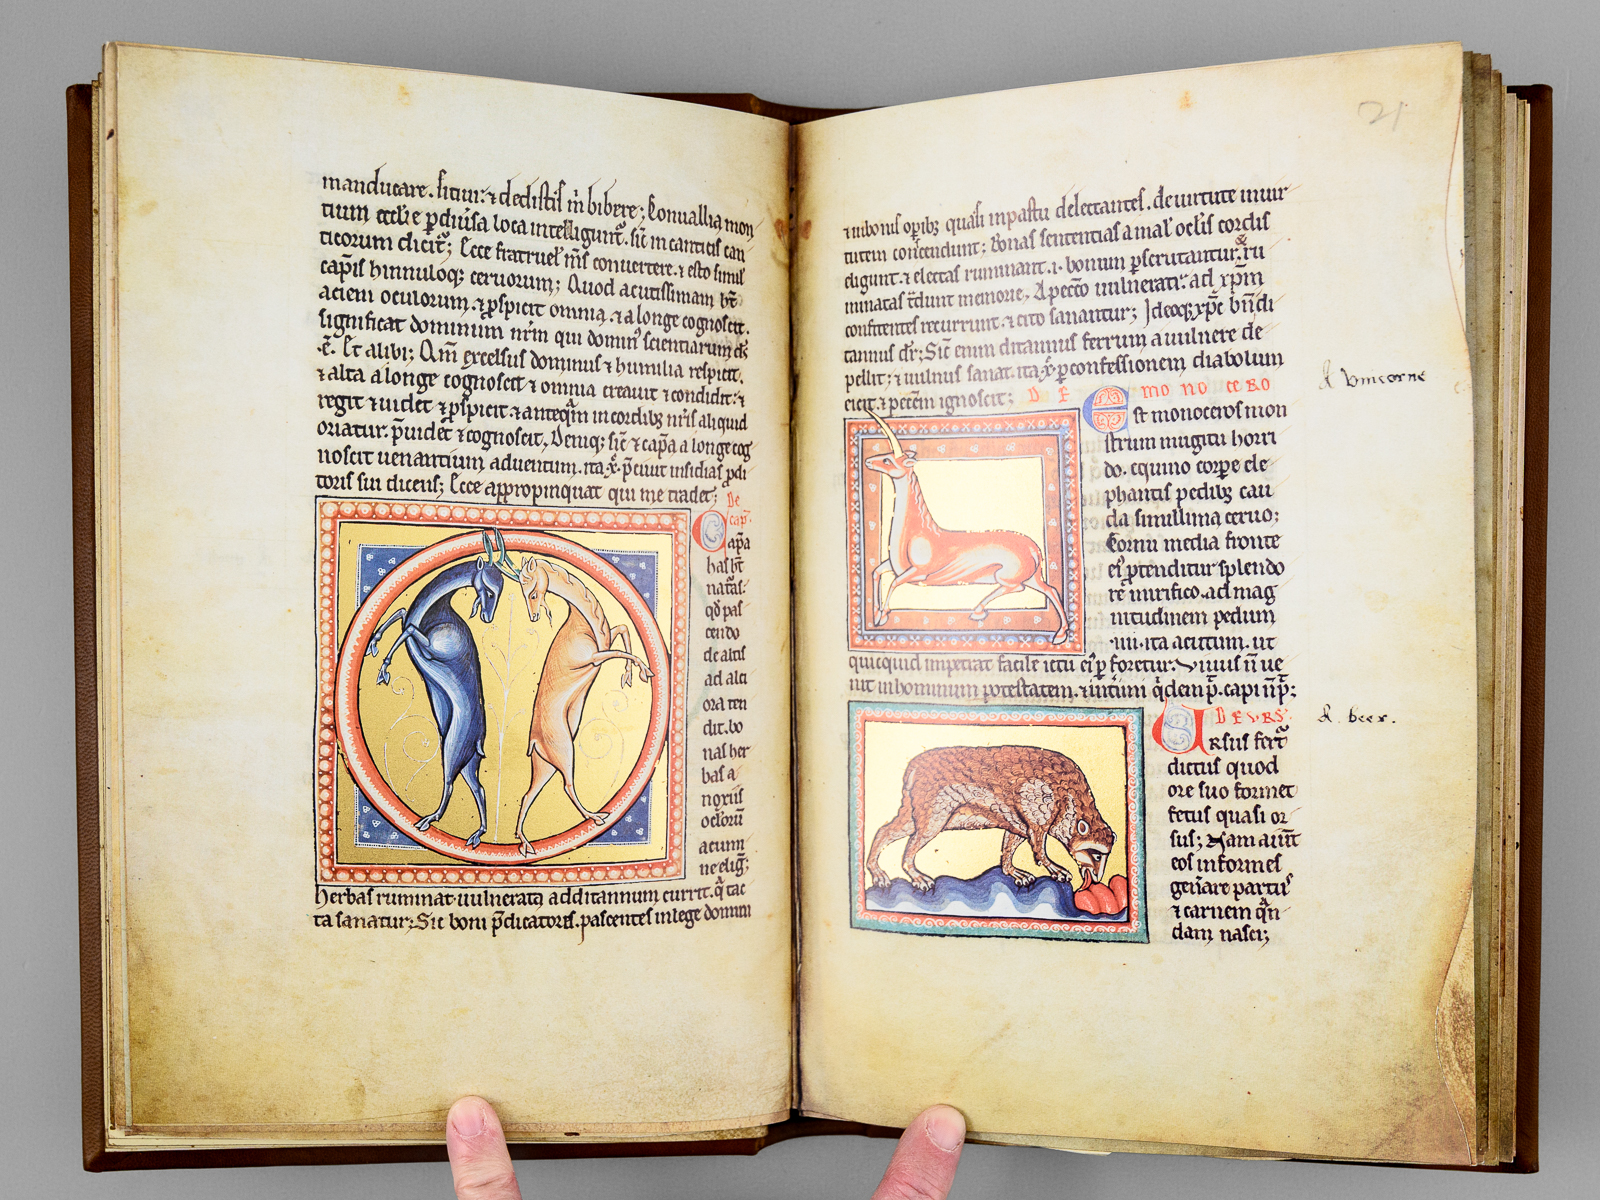 manducare. sitiui: ⁊ dedistis m̄ bibere; Conuallia mon
tium eccl̄ie p̲ diu̾sa loca intelligunt᷑. sic̄ in canticis can
ticorum dicit᷑; Ecce fratruel' m̄s conuertere. ⁊ esto simil'
cap̄is hinnuloq; ceruorum; Quod acutissimam hn̄t
aciem oculorum. ⁊ p̲spicit omnia. ⁊ a longe cognoscit.
significat dominum nr̄m qui domin' scientiarum d̄s
.ē. Et alibi; Qm̄ excelsus dominus ⁊ humilia respicit.
⁊ alta a longe cognoscit ⁊ omnia creauit ⁊ condidit: ⁊
regit ⁊ uidet ⁊ p̲spicit ⁊ anteq̄m in cordib; nr̄is aliquid
oriatur. p̄uidet ⁊ cognoscit. Deniq; sic̄ ⁊ cap̄a a longe cog
noscit uenantium aduentum. ita x̄. p̄ciuit insidias p̲di
toris sui dicens; Ecce appropinquat qui me tradet;
De
cap̄.
Cap̄a
has hn̄t
natas.
qd̄ pas
cendo
de altis
ad alti
ora ten
dit. bo
nas her
bas a
noxiis
ocl'orū
acum
ne elig̾;
herbas ruminat. uulnerata ad ditannum currit. q̄ tac
ta sanatur; Sic boni p̄dicatores. pascentes in lege domini
21
⁊ in bonis op̲ib; quasi in pastu delectantes. de uirtute in uir
tutem conscendunt; Bonas sententias a mal' oc̄lis cordis
eligunt. ⁊ electas ruminant .i. bonum p̲scrutantur. ⁊ ru
minatas t̄dunt memorie. A pecc̄o uulnerati: ad xp̄m
confitentes recurrunt. ⁊ cito sanantur; Ideoq; xp̄c bn̄ di
tannus dr̄; Sic̄ enim ditannus ferrum a uulnere de
pellit; ⁊ uulnus sanat. ita x̄. p̲ confessionem diabolum
eicit. ⁊ pecc̄m ignoscit; DE MONOCERO
Est monoceros mon
strum mugitu horri
do. equino corp̲e ele
phantis pedib; cau
da simillima ceruo;
Cornu media fronte
ei' p̲tenditur splendo
re mirifico. ad mag
nitudinem pedum
.iiii. ita acutum. ut
quicquid impetat facile ictu ei' p̲foretur. Viuus n̄ ue
nit in hominum potestatem. ⁊ int̾imi q̇dem p̄. capi n̄ p̄;
A Vnicorne
DE VRS'.
A. beer.
Ursus fert᷑
dictus quod
ore suo formet
fetus quasi or
sus; Nam aiūt
eos informes
gen̾are partus
⁊ carnem q̄n
dam nasci;